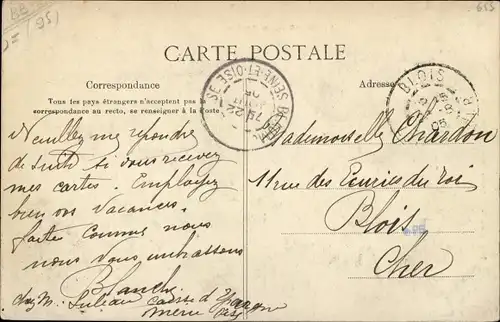 BB
95)
653
CARTE POSTALE
Correspondance
Adresse
Tous les pays étrangers n'acceptent pas la
correspondance au recto, se renseigner à la Poste.
SEINE-ET-OISE
BLOIS
Veuillez me repondre
de suite si vous recevez
mes cartes. Employez
bien vos vacances.
faites comme nous
nous vous embrassons
Blanche
chez M. Julien caisse d'Epargne
Mademoiselle Chardon
11 rue des Ecuries du roi
Blois
Cher